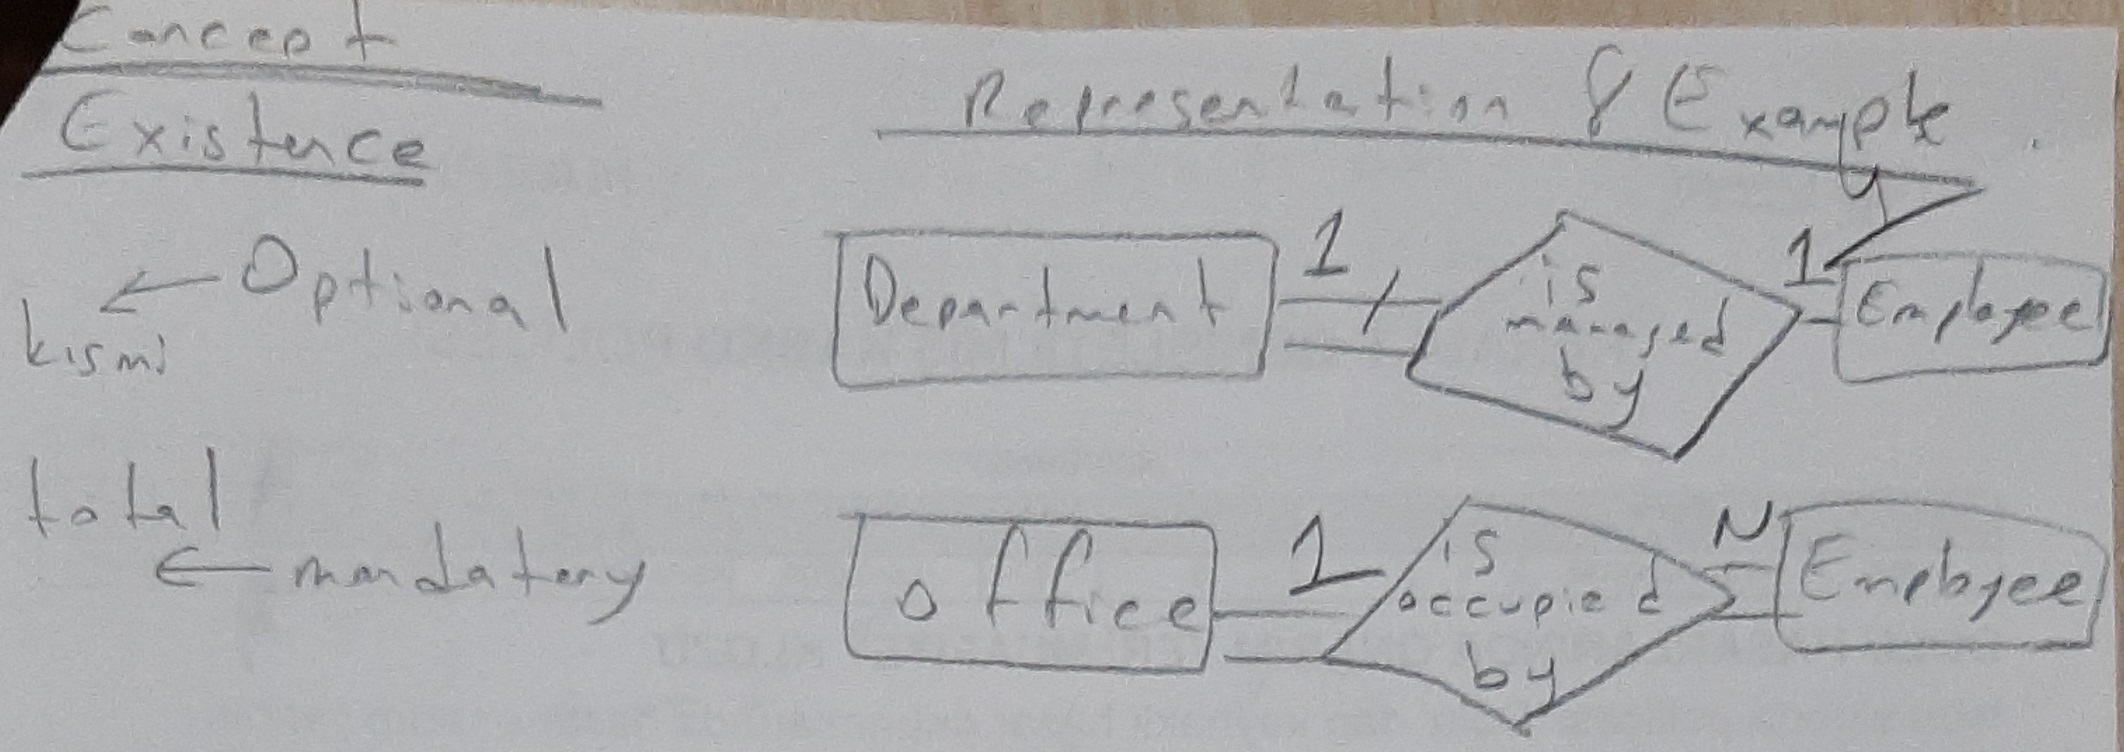 Concept
Representation & Example
Existence
Optional
kısmi
Department
1
is
managed
by
1
Employee
total
mandatory
office
1
is
occupied
by
N
Employee